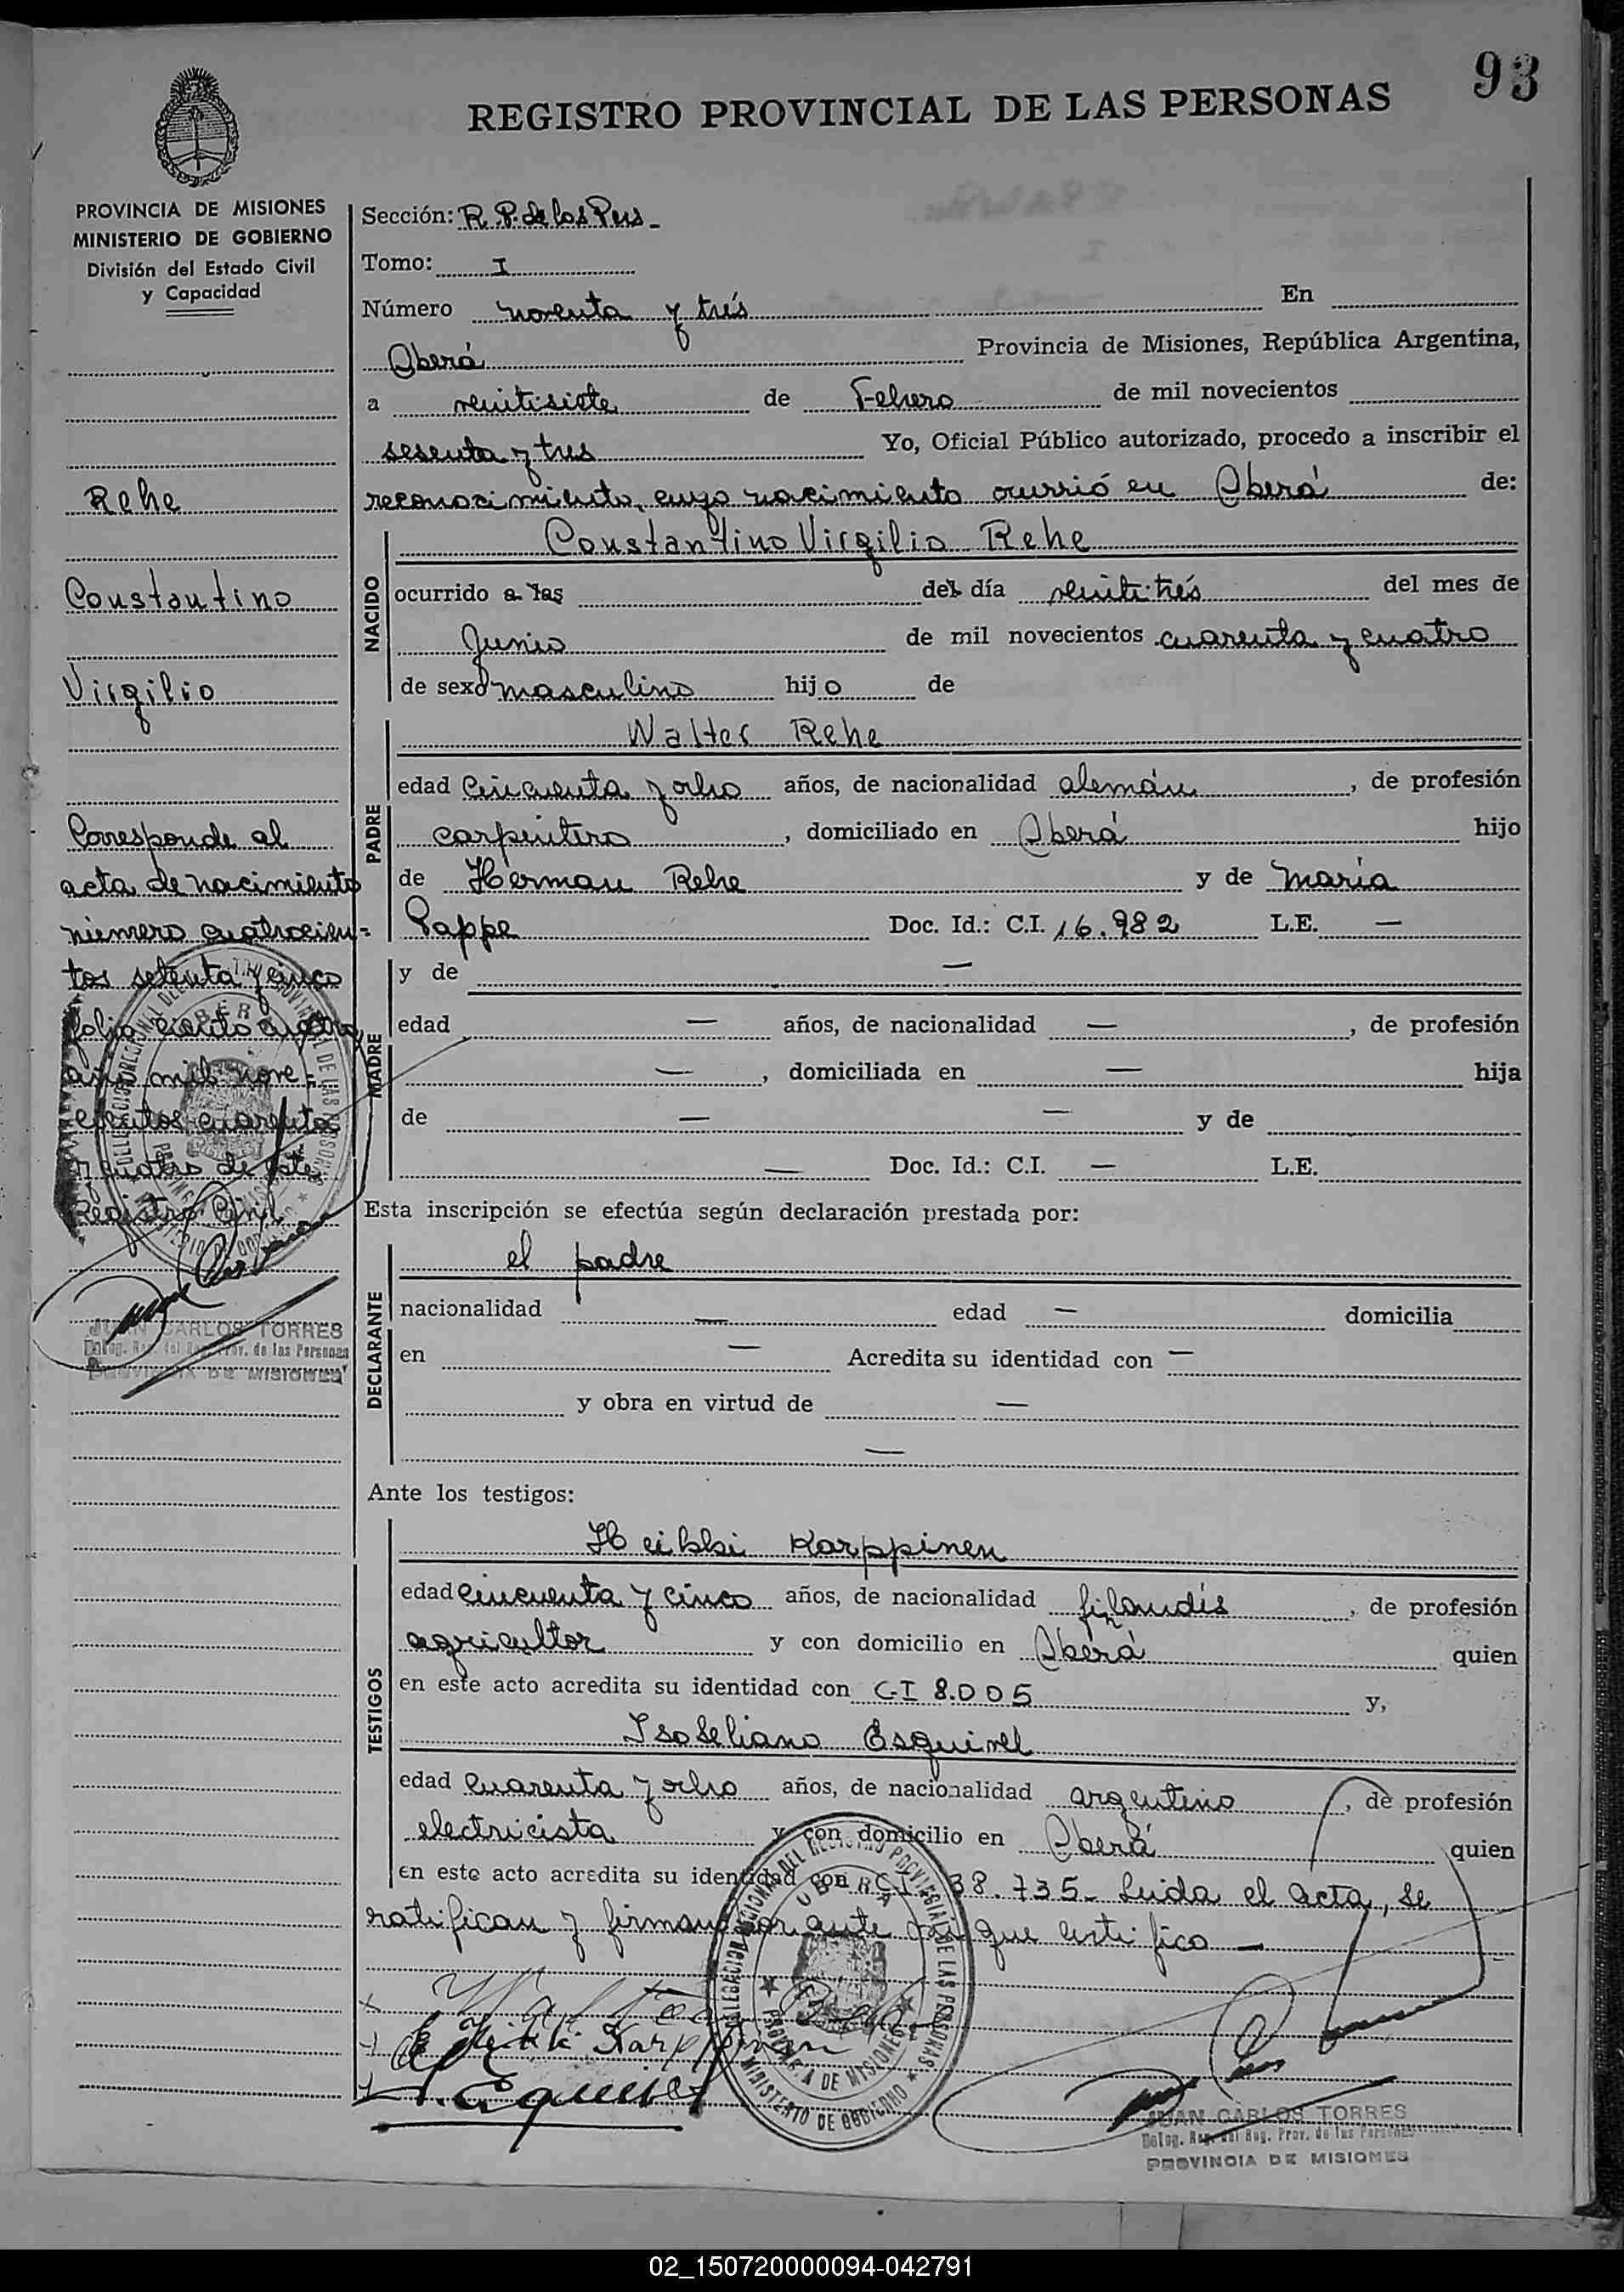 93
REGISTRO PROVINCIAL DE LAS PERSONAS
PROVINCIA DE MISIONES
MINISTERIO DE GOBIERNO
División del Estado Civil
y Capacidad
Rehe
Constantino
Virgilio
Corresponde al
acta de nacimiento
número cuatrocien-
tos setenta y cinco
folio ciento cuatro
año mil nove-
cientos cuarenta
y cuatro de este
Registro Civil
JUAN CARLOS TORRES
Deleg. Reg. del Reg. Prov. de las Personas
PROVINCIA DE MISIONES
Sección: R. P. de las Pers -
Tomo: I
Número noventa y trés En
Oberá Provincia de Misiones, República Argentina,
a veintisiete de Febrero de mil novecientos
sesenta y tres Yo, Oficial Público autorizado, procedo a inscribir el
reconocimiento, cuyo nacimiento ocurrió en Oberá de:
NACIDO
Constantino Virgilio Rehe
ocurrido a las del día veintitrés del mes de
Junio de mil novecientos cuarenta y cuatro
de sexo masculino hijo de
PADRE
Walter Rehe
edad cincuenta y ocho años, de nacionalidad alemán , de profesión
carpintero , domiciliado en Oberá hijo
de Herman Rehe y de María
Pappe Doc. Id.: C.I. 16.982 L.E. —
MADRE
y de —
edad — años, de nacionalidad — , de profesión
— , domiciliada en — hija
de — — y de
— Doc. Id.: C.I. — L.E.
Esta inscripción se efectúa según declaración prestada por:
DECLARANTE
el padre
nacionalidad — edad — domicilia
en — Acredita su identidad con —
y obra en virtud de —
—
Ante los testigos:
TESTIGOS
Heikki Karppinen
edad cincuenta y cinco años, de nacionalidad filandés , de profesión
agricultor y con domicilio en Oberá quien
en este acto acredita su identidad con C.I 8.005 y,
Isoseliano Esquivel
edad cuarenta y ocho años, de nacionalidad argentino , de profesión
electricista y con domicilio en Oberá quien
en este acto acredita su identidad con C.I. 38.735- Leida el acta, se
ratifican y firman por ante mí que certifico —
Walter Rehe
Heikki Karppinen
I. Esquivel
DELEGACION REGIONAL DEL REGISTRO PROVINCIAL DE LAS PERSONAS
OBERA
PROVINCIA DE MISIONES
MINISTERIO DE GOBIERNO
JUAN CARLOS TORRES
Deleg. Reg. del Reg. Prov. de las Personas
PROVINCIA DE MISIONES
02_150720000094-042791